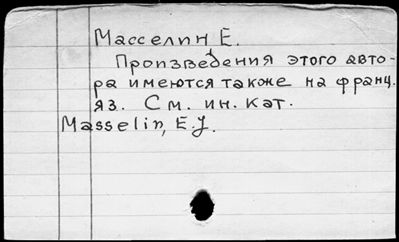 Масселин Е.
Произведения этого авто-
ра имеются также на франц.
яз. См. ин. кат.
Masselin, E.J.